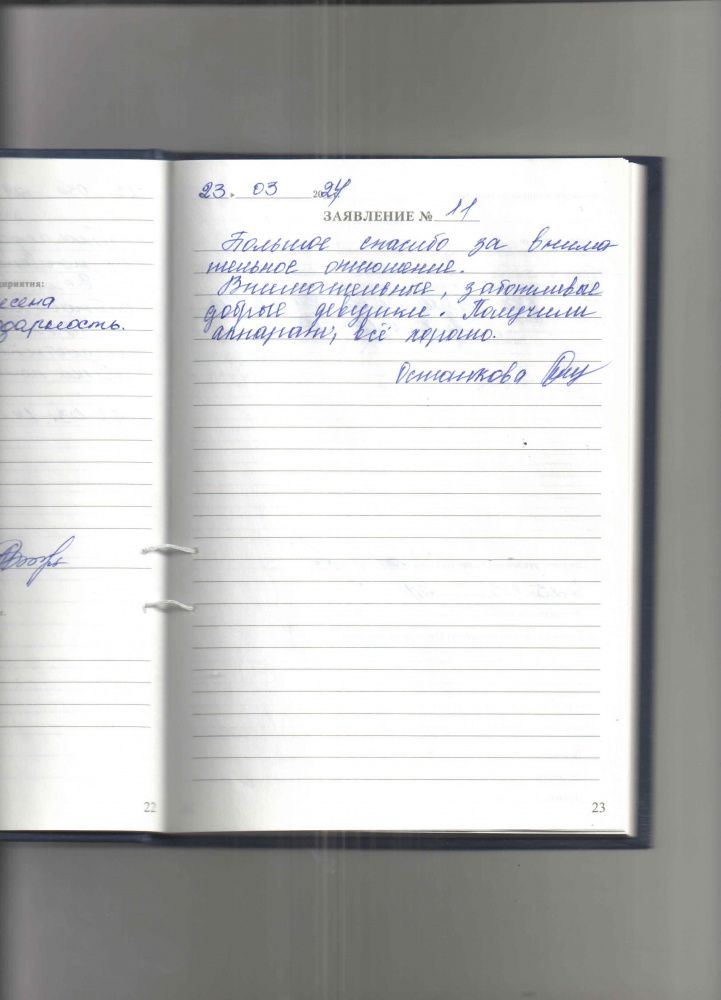 23. 03 2024
ЗАЯВЛЕНИЕ № 11
Большое спасибо за внима
тельное отношение.
Внимательные, заботливые
добрые девушки. Получили
аппарат, всё хорошо.
Останкова
дприятия:
есена
одарность.
22
23